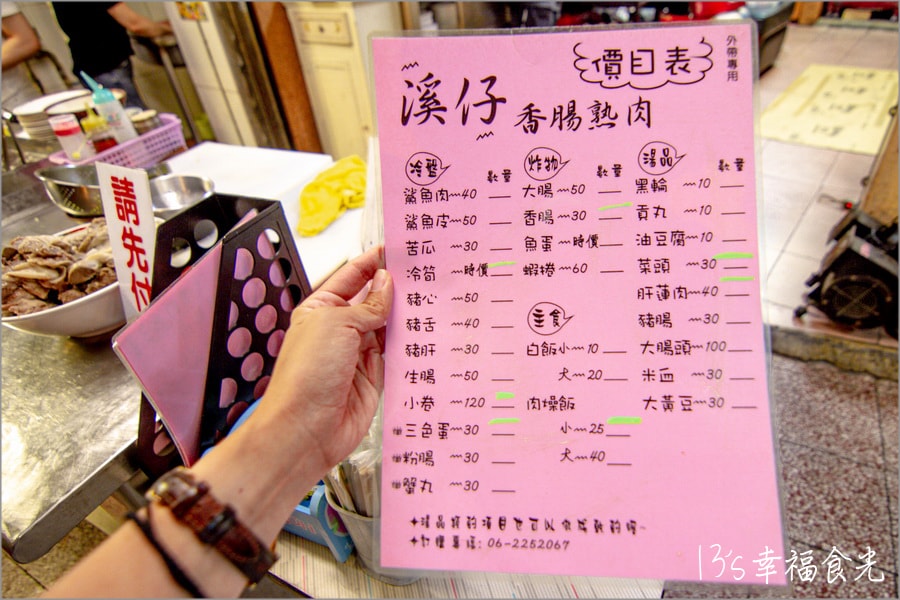 外帶專用
價目表
溪仔 香腸熟肉
冷盤 數量
鯊魚肉～40
鯊魚皮～50
苦瓜～30
冷筍～時價
豬心～50
豬舌～40
豬肝～30
生腸～50
小卷～120
三色蛋～30
粉腸～30
蟹丸～30
炸物 數量
大腸～50
香腸～30
魚蛋～時價
蝦捲～60
主食
白飯小～10
大～20
肉燥飯
小～25
大～40
湯品 數量
黑輪～10
貢丸～10
油豆腐～10
菜頭～30
肝蓮肉～40
豬腸～30
大腸頭～100
米血～30
大黃豆～30
✦湯品類的項目也可以做成乾的喔~
✦訂購專線: 06-2252067
請先付
13's幸福食光